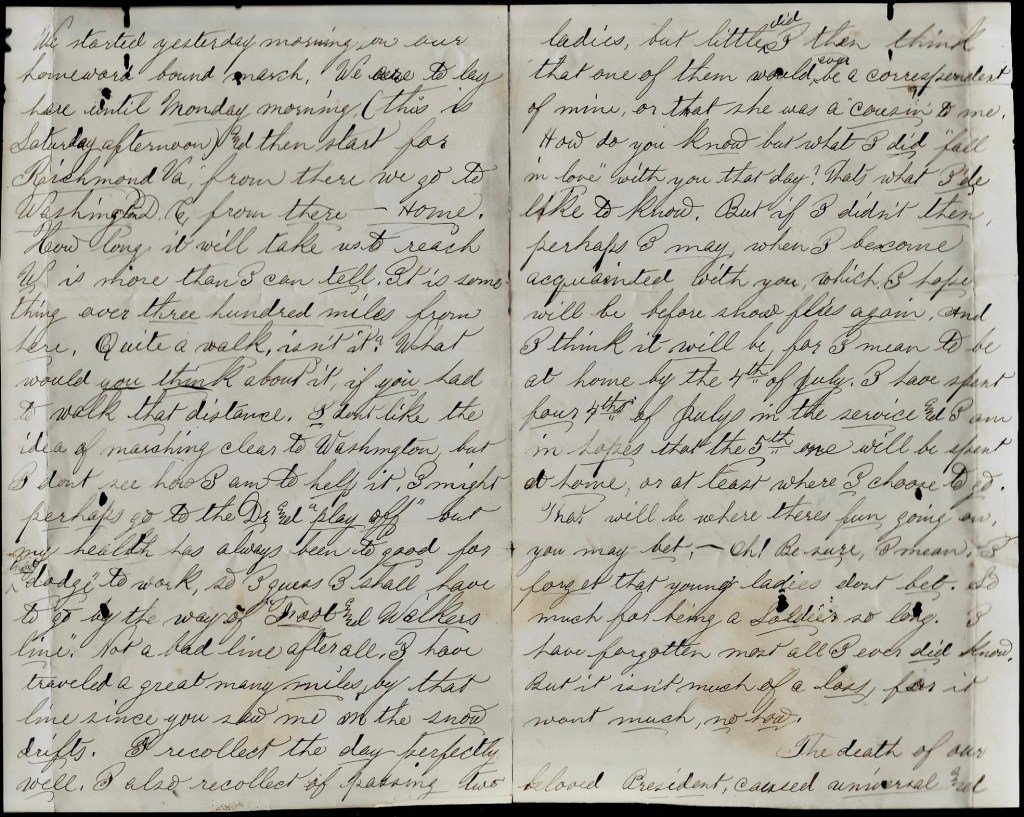 We started yesterday morning, on our
homeward bound march. We are to lay
here until Monday morning, (this is
Saturday afternoon) and then start for
Richmond Va, from there we go to
Washington D. C, from there — Home.
How long it will take us to reach
W, is more than I can tell. It is some-
thing over three hundred miles from
here. Quite a walk, isn't it? What
would you think about it, if you had
to walk that distance. I dont like the
idea of marching clear to Washington, but
I dont see how I am to help it. I might
perhaps go to the Dr and "play off" but
my health has always been to good for
that
dodge, to work, so I guess I shall have
to go by the way of "Foot and Walkers
line". Not a bad line after all, I have
traveled a great many miles, by that
line since you saw me in the snow
drifts. I recollect the day perfectly
well. I also recollect of passing two
ladies, but little did I then think
that one of them would, ever be a correspondent
of mine, or that she was a "cousin" to me.
How do you know but what I did "fall
in love" with you that day? Thats what I'de
like to know. But if I didn't then,
perhaps I may, when I become
acquainted with you, which, I hope
will be before snow flies again. And
I think it will be, for I mean to be
at home by the 4th of July. I have spent
four 4ths of Julys in the service and I am
in hopes that the 5th one will be spent
at home, or at least where I choose to go.
That will be where theres fun going on,
you may bet, — Oh! Be sure, I mean. I
forget that young ladies dont bet. So
much for being a soldier so long. I
have forgotten most all I ever did know.
But it isn't much of a loss, for it
want much, no how.
The death of our
beloved President, caused universal and